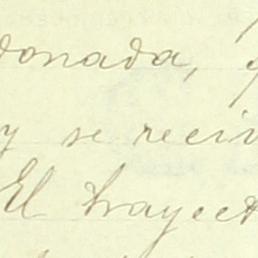 donada,
y se reci
El trayect